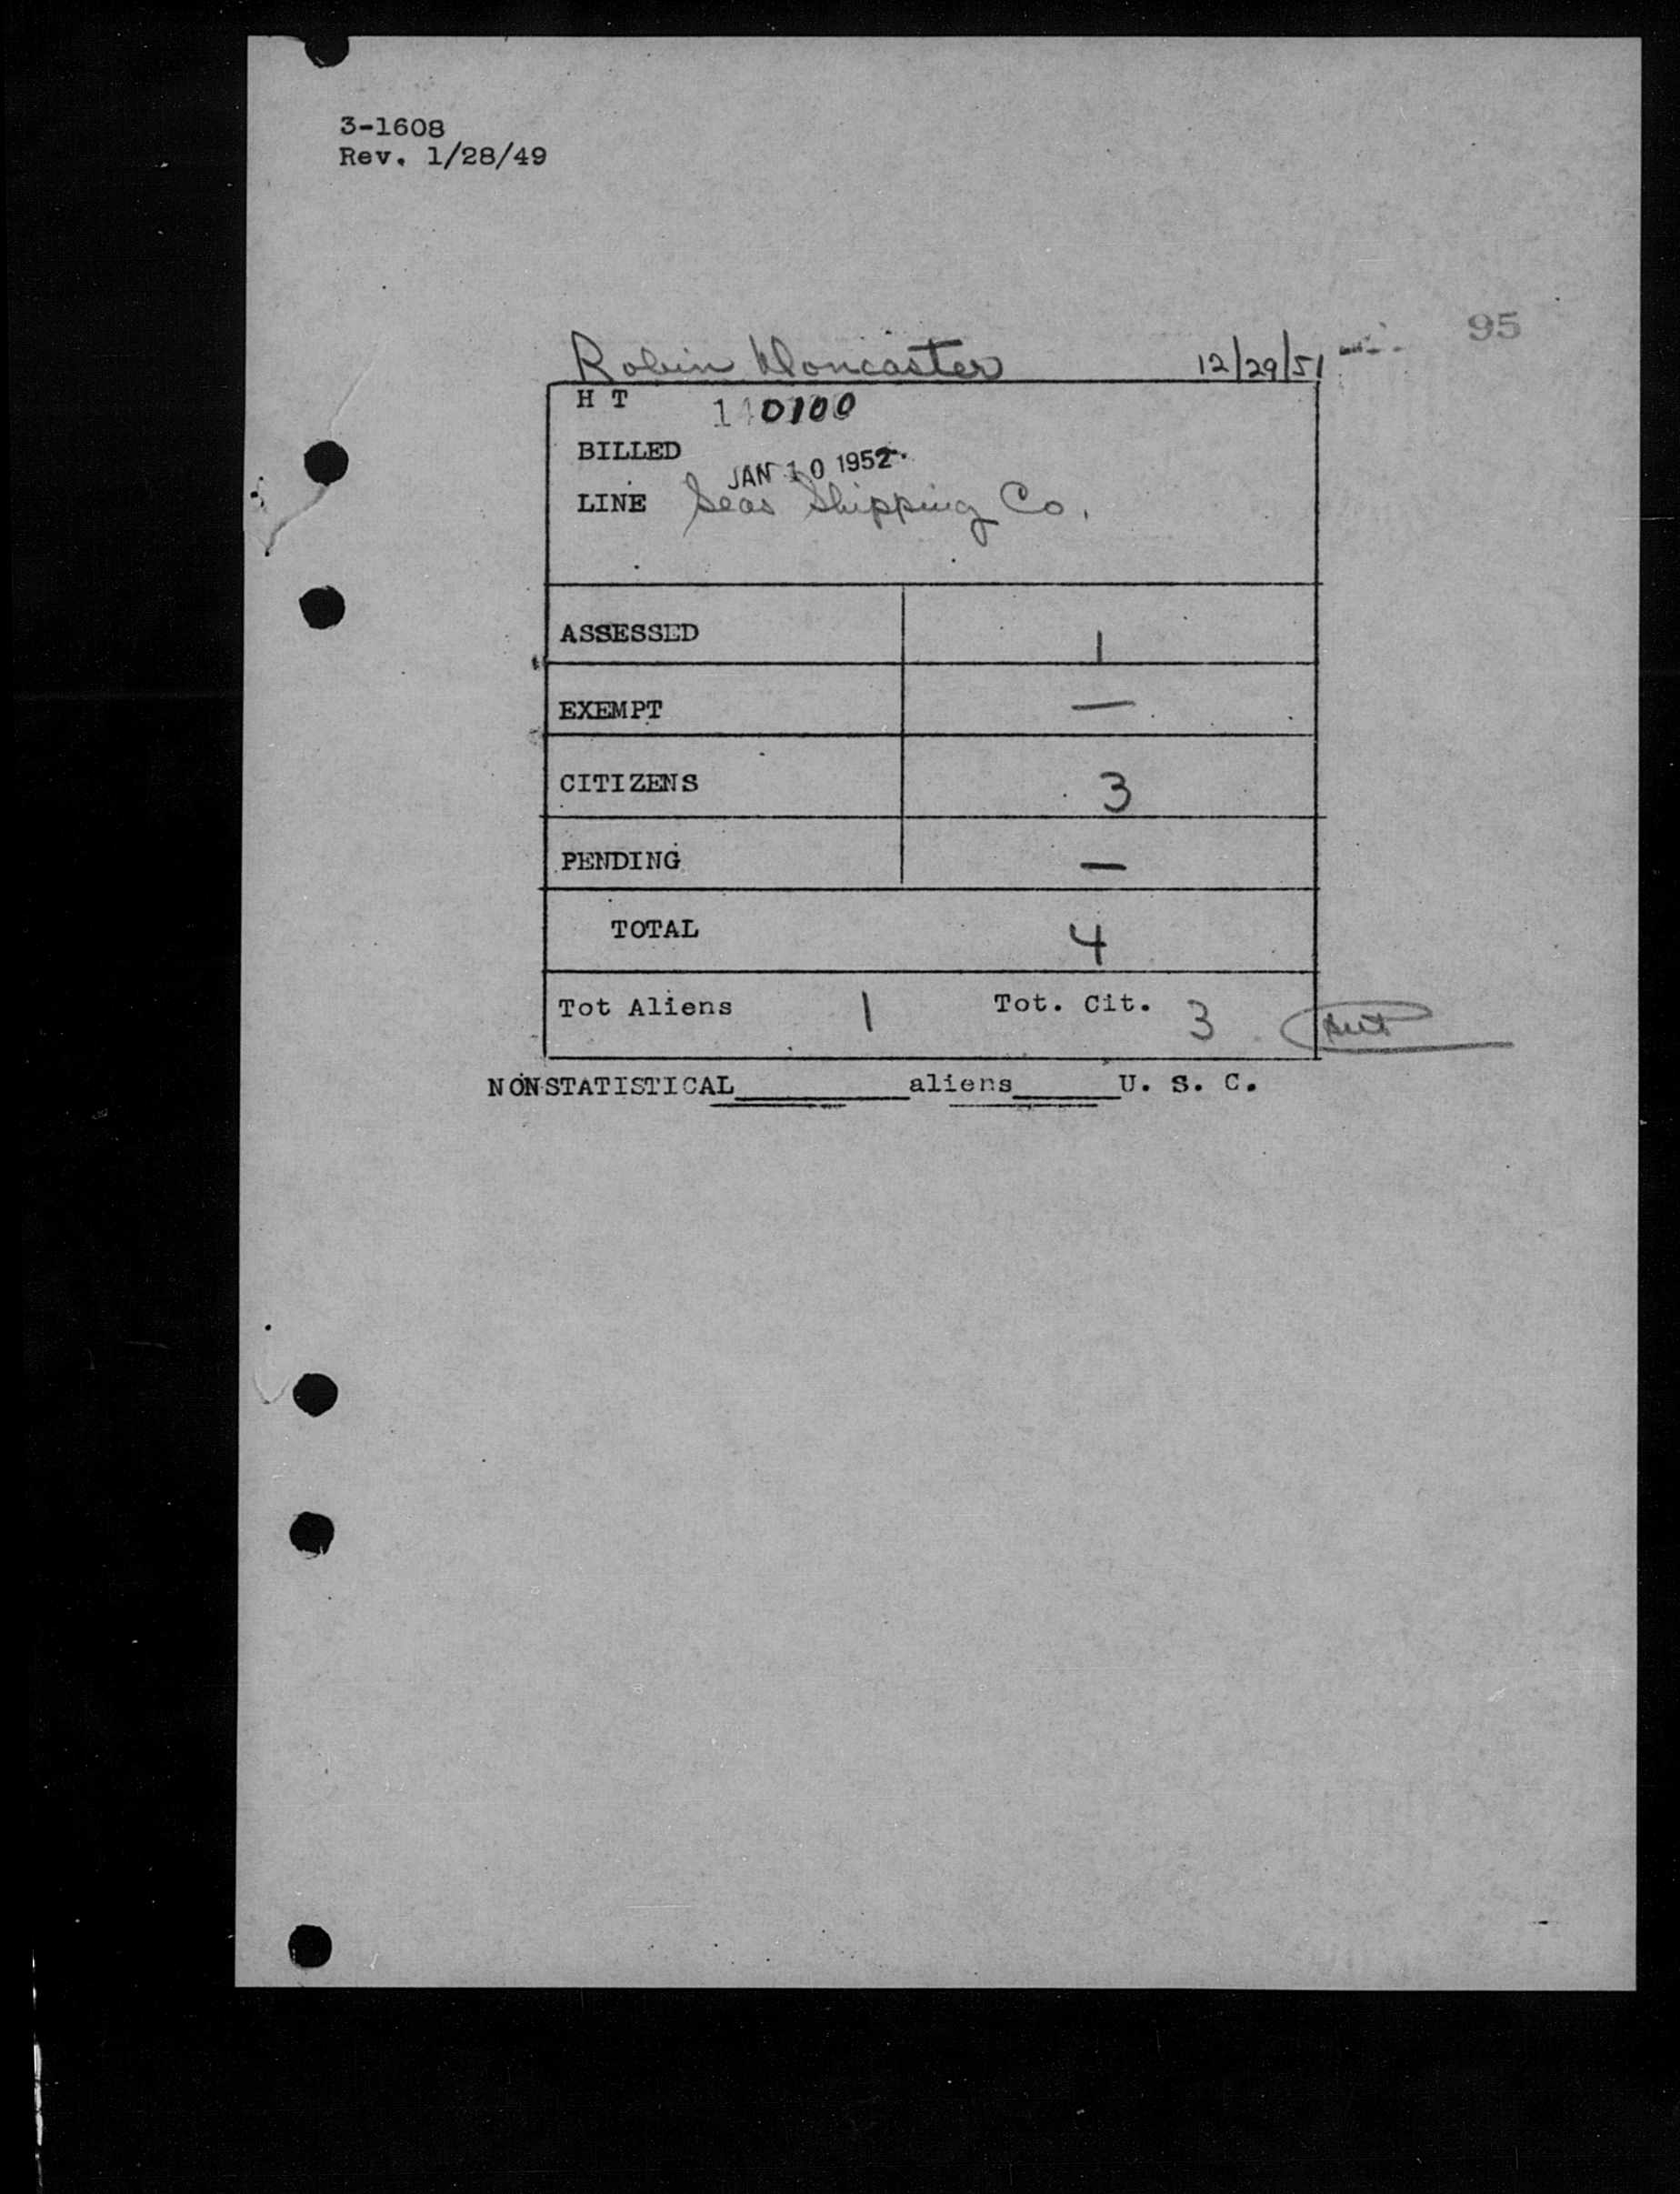 3-1608
Rev. 1/28/49
95
Robin Doncaster 12/29/51
H T 140100
BILLED JAN 10 1952
LINE Seas Shipping Co.
ASSESSED 1
EXEMPT —
CITIZENS 3
PENDING —
TOTAL 4
Tot Aliens 1 Tot. Cit. 3
NONSTATISTICAL__________aliens______U. S. C.